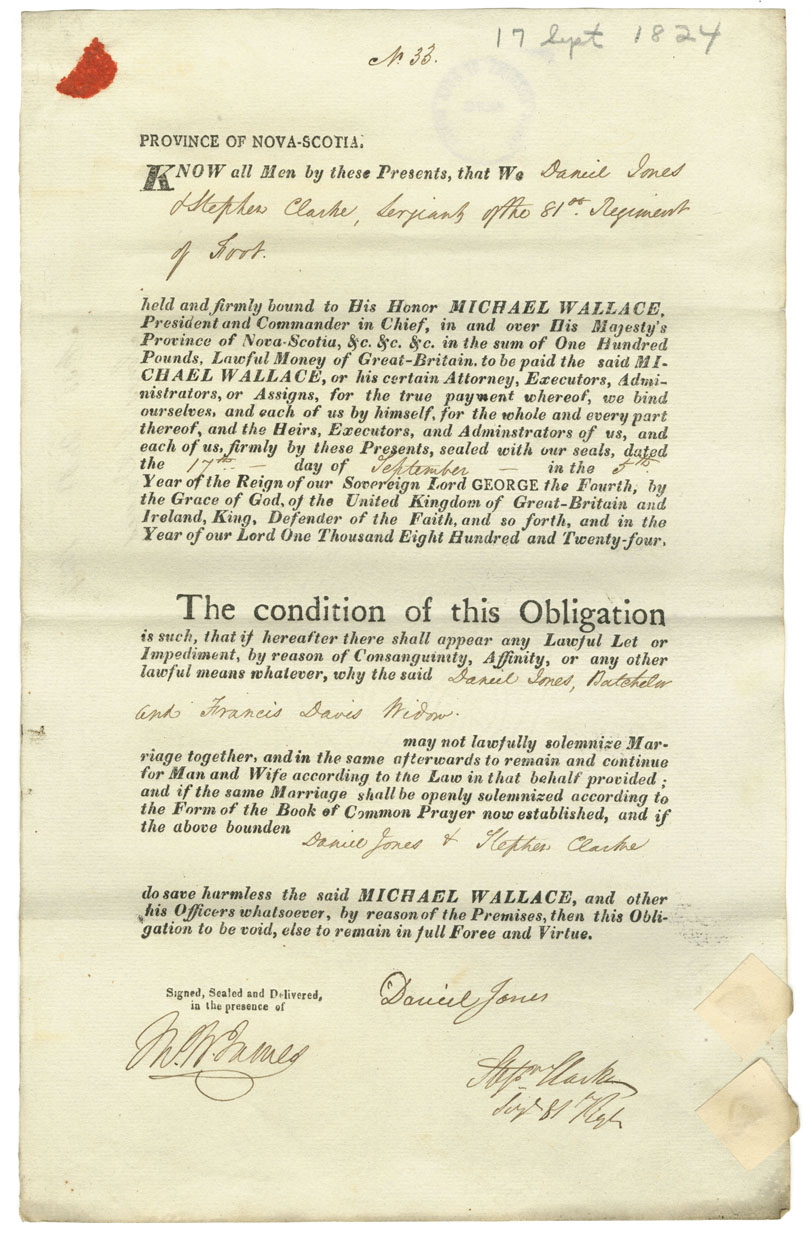 17 Sept 1824
No. 33.
PROVINCE OF NOVA-SCOTIA.
KNOW all Men by these Presents, that We Daniel Jones
& Stephen Clarke, Serjiants of the 81st. Regiment
of Foot.
held and firmly bound to His Honor MICHAEL WALLACE,
President and Commander in Chief, in and over His Majesty's
Province of Nova-Scotia, &c. &c. &c. in the sum of One Hundred
Pounds, Lawful Money of Great-Britain. to be paid the said MI-
CHAEL WALLACE, or his certain Attorney, Executors, Admi-
nistrators, or Assigns, for the true payment whereof, we bind
ourselves, and each of us by himself, for the whole and every part
thereof, and the Heirs, Executors, and Adminstrators of us, and
each of us, firmly by these Presents, sealed with our seals, dated
the 17th — day of September — in the 5th
Year of the Reign of our Sovereign Lord GEORGE the Fourth, by
the Grace of God, of the United Kingdom of Great-Britain and
Ireland, King, Defender of the Faith, and so forth, and in the
Year of our Lord One Thousand Eight Hundred and Twenty-four.
The condition of this Obligation
is such, that if hereafter there shall appear any Lawful Let or
Impediment, by reason of Consanguinity, Affinity, or any other
lawful means whatever, why the said Daniel Jones, Batchelor
and Francis Davis Widow.
may not lawfully solemnize Mar-
riage together, and in the same afterwards to remain and continue
for Man and Wife according to the Law in that behalf provided;
and if the same Marriage shall be openly solemnized according to
the Form of the Book of Common Prayer now established, and if
the above bounden Daniel Jones & Stephen Clarke
do save harmless the said MICHAEL WALLACE, and other
his Officers whatsoever, by reason of the Premises, then this Obli-
gation to be void, else to remain in full Force and Virtue.
Signed, Sealed and Delivered,
in the presence of
Daniel Jones
James
Stepn Clarke
Serjt 81 Regt